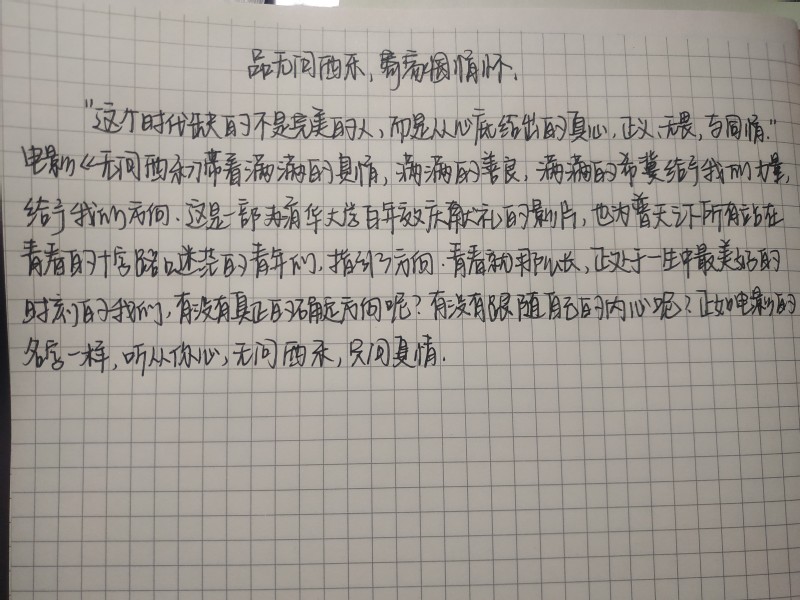 品无问西东,寄家国情怀.
"这个时代缺的不是完美的人,而是从心底给出的真心,正义,无畏,与同情."
电影《无问西东》带着满满的真情,满满的善良,满满的希冀给予我们力量,
给予我们方向.这是一部为清华大学百年校庆献礼的影片,也为普天之下所有站在
青春的十字路口迷茫的青年们,指引了方向.青春就那么长,正处于一生中最美好的
时刻的我们,有没有真正的确定方向呢?有没有跟随自己的内心呢?正如电影的
名字一样,听从你心,无问西东,只问真情.